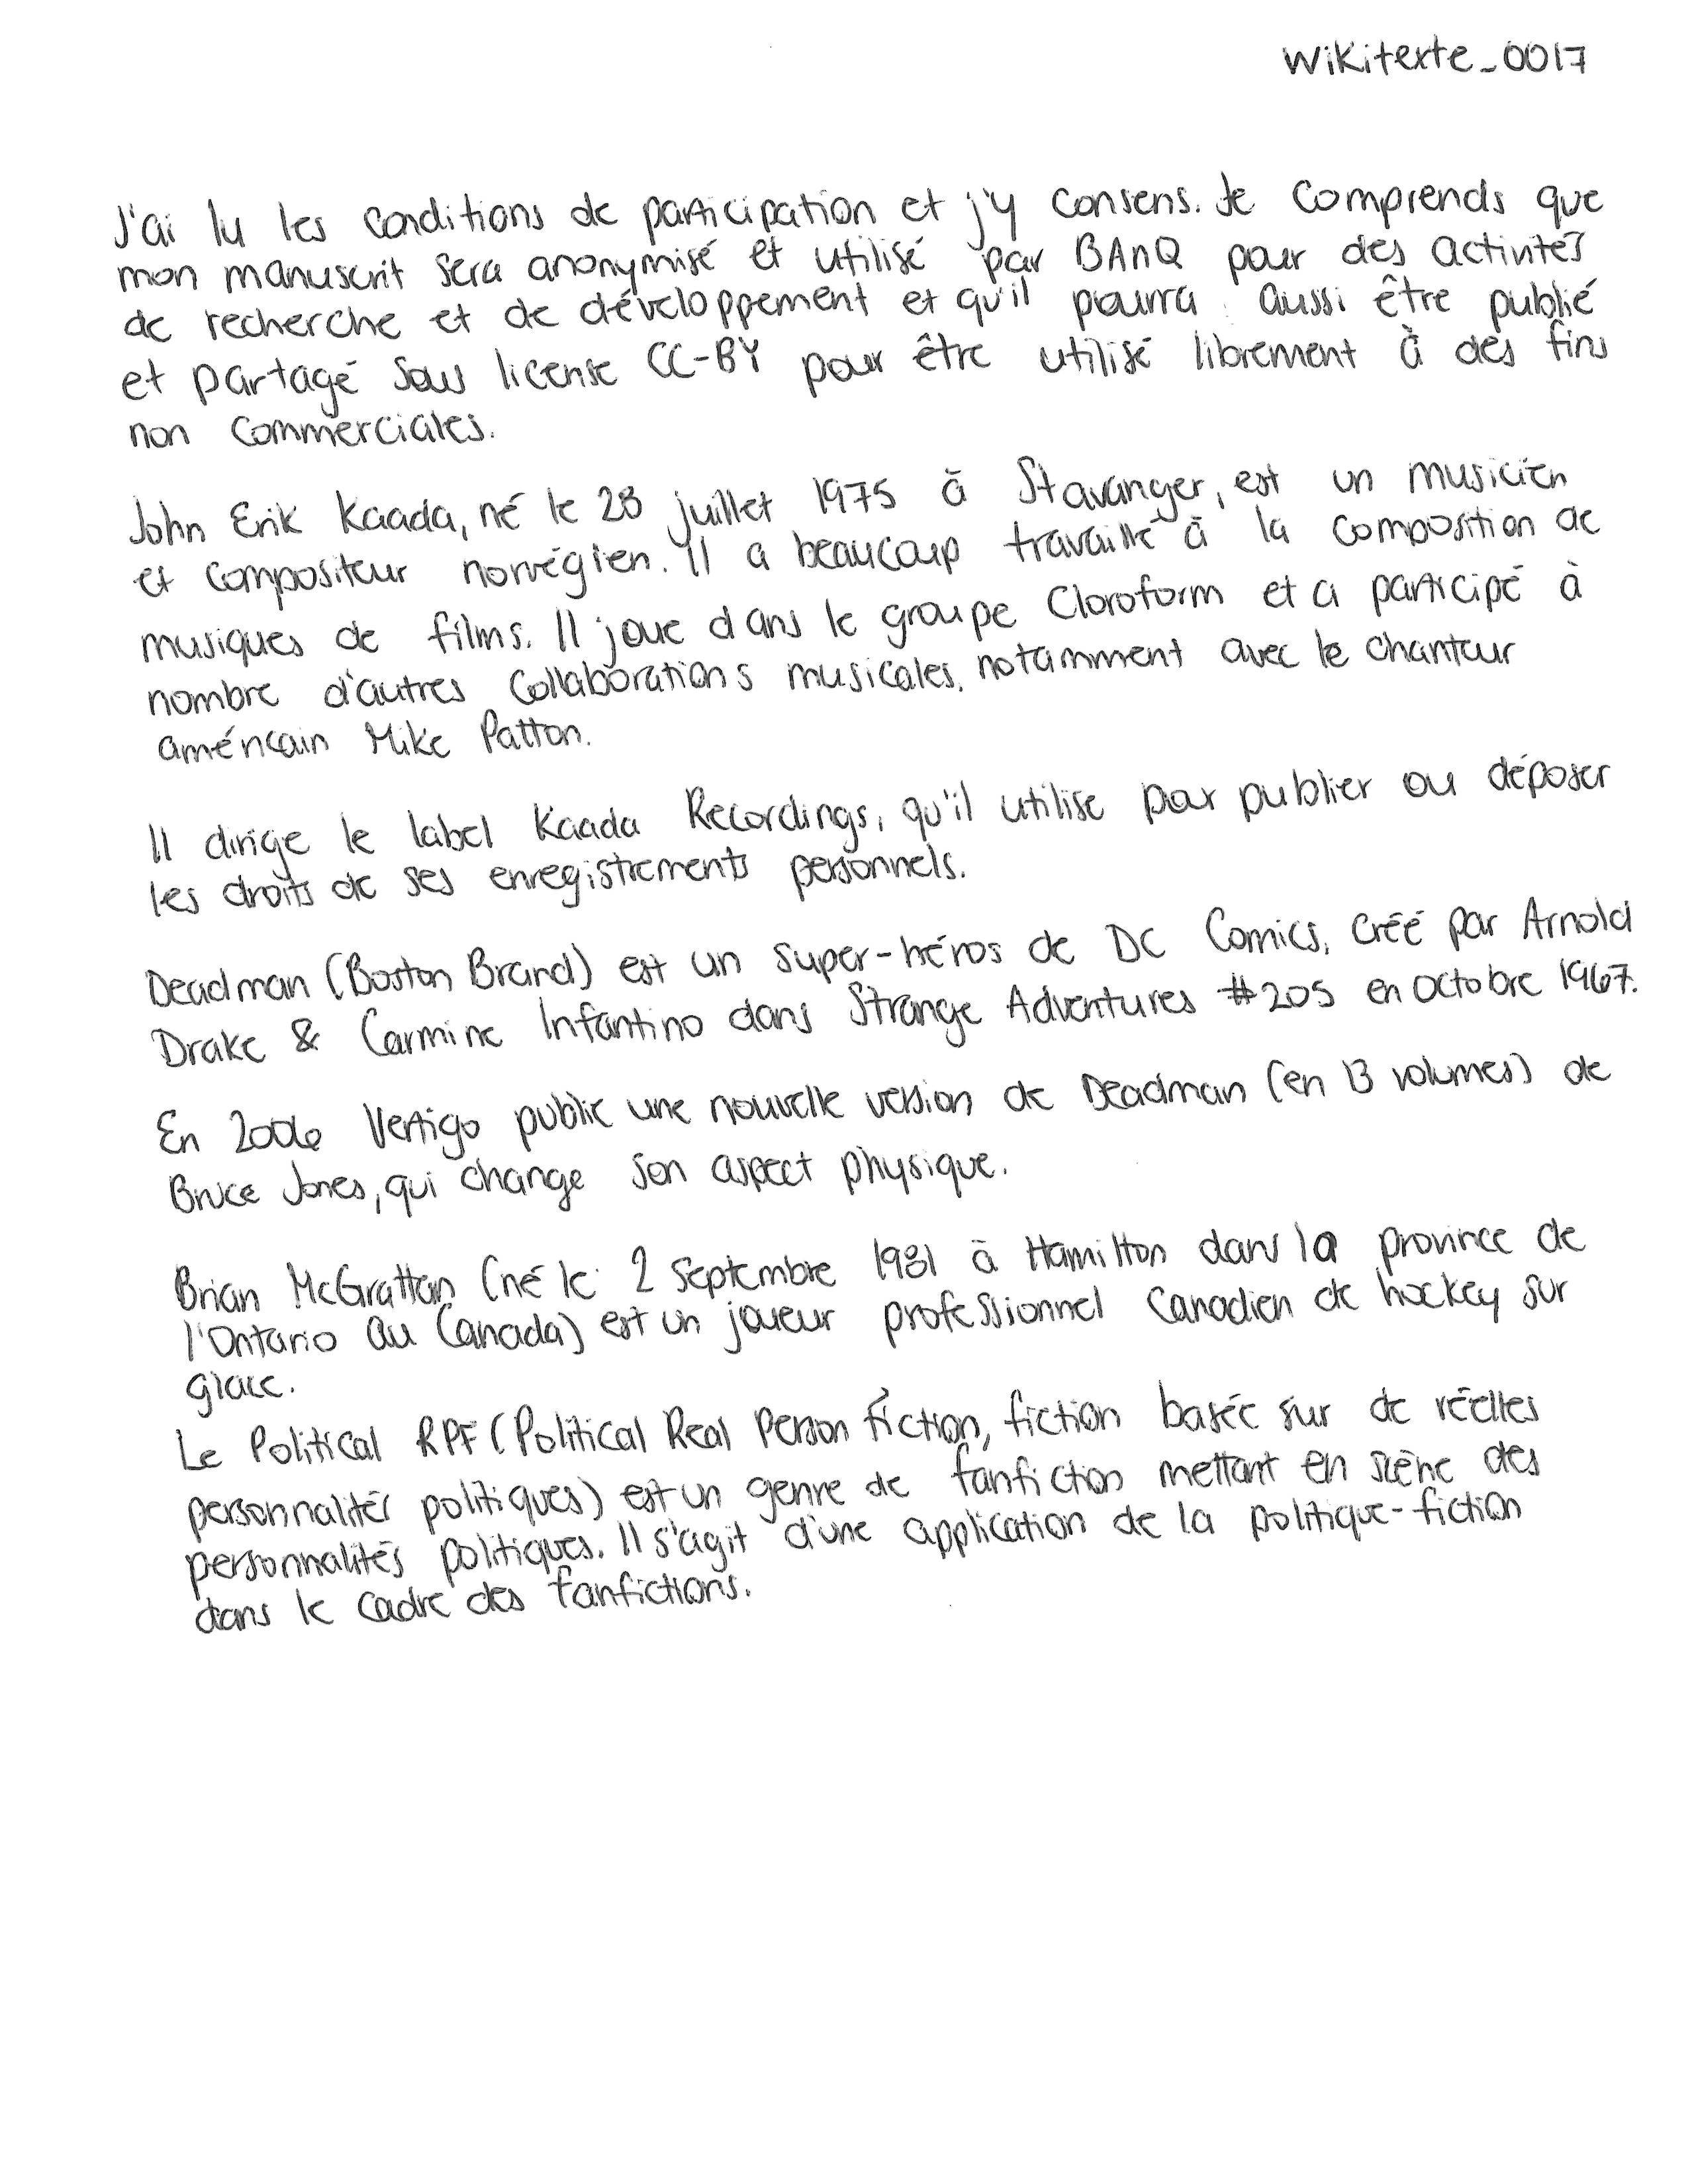 Wikitexte_0017
J'ai lu les conditions de participation et j'y consens. Je comprends que
mon manuscrit sera anonymisé et utilisé par BAnQ pour des activités
de recherche et de développement et qu'il pourra aussi être publié
et partagé sous license CC-BY pour être utilisé librement à des fins
non commerciales.
John Erik Kaada, né le 28 juillet 1975 à Stavanger, est un musicien
et compositeur norvégien. Il a beaucoup travaillé à la composition de
musiques de films. Il joue dans le groupe Cloroform et a participé à
nombre d'autres collaborations musicales, notamment avec le chanteur
américain Mike Patton.
Il dirige le label Kaada Recordings, qu'il utilise pour publier ou déposer
les droits de ses enregistrements personnels.
Deadman (Boston Brand) est un super-héros de DC Comics, créé par Arnold
Drake & Carmine Infantino dans Strange Adventures #205 en octobre 1967.
En 2006 Vertigo publie une nouvelle version de Deadman (en 13 volumes) de
Bruce Jones, qui change son aspect physique.
Brian McGrattan (né le 2 septembre 1981 à Hamilton dans la province de
l'Ontario au Canada) est un joueur professionnel canadien de hockey sur
glace.
Le Political RPF (Political Real Person Fiction, fiction basée sur de réelles
personnalités politiques) est un genre de fanfiction mettant en scène des
personnalités politiques. Il s'agit d'une application de la politique-fiction
dans le cadre des fanfictions.